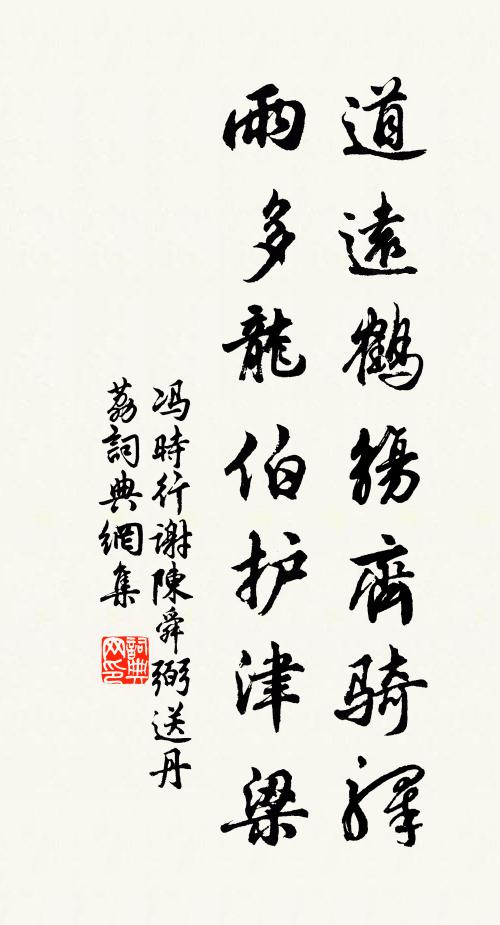 道遠鶴觴齊騎驛
雨多龍伯护津梁
冯時行谢陳舜弼送丹
荔詞典網集
詞典网印